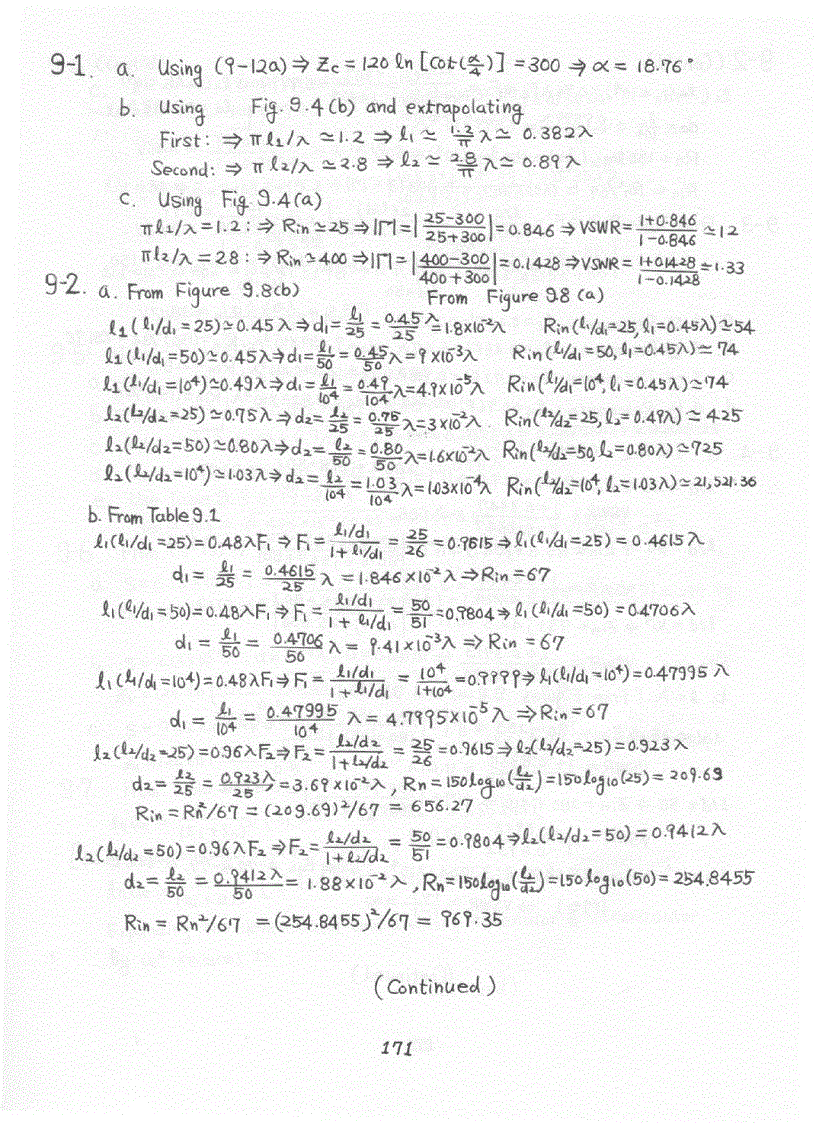 9-1. a. Using (9-12a) ⇒ Zc = 120 ln [cot(α/4)] = 300 ⇒ α = 18.76°
b. Using Fig. 9.4 (b) and extrapolating
First: ⇒ πl1/λ ≃ 1.2 ⇒ l1 ≃ 1.2/π λ ≃ 0.382λ
Second: ⇒ πl2/λ ≃ 2.8 ⇒ l2 ≃ 2.8/π λ ≃ 0.89λ
C. Using Fig. 9.4(a)
πl1/λ = 1.2 : ⇒ Rin ≃ 25 ⇒ |Γ| = |25-300/25+300| = 0.846 ⇒ VSWR = 1+0.846/1-0.846 ≃ 12
πl2/λ = 28 : ⇒ Rin ≃ 400 ⇒ |Γ| = |400-300/400+300| = 0.1428 ⇒ VSWR = 1+0.1428/1-0.1428 ≃ 1.33
9-2. a. From Figure 9.8(b) From Figure 9.8 (a)
l1 (l1/d1 = 25) ≃ 0.45λ ⇒ d1 = l1/25 = 0.45λ/25 = 1.8x10^-2 λ Rin (l1/d1=25, l1=0.45λ) ≃ 54
l1 (l1/d1 = 50) ≃ 0.45λ ⇒ d1 = l1/50 = 0.45/50 λ = 9x10^-3 λ Rin (l1/d1 = 50, l1=0.45λ) ≃ 74
l1 (l1/d1 = 10^4) ≃ 0.49λ ⇒ d1 = l1/10^4 = 0.49/10^4 λ = 4.9x10^-5 λ Rin (l1/d1=10^4, l1 = 0.45λ) ≃ 74
l2 (l2/d2 = 25) ≃ 0.75λ ⇒ d2 = l2/25 = 0.75/25 λ = 3x10^-2 λ. Rin (l2/d2=25, l2=0.49λ) ≃ 425
l2 (l2/d2 = 50) ≃ 0.80λ ⇒ d2 = l2/50 = 0.80/50 λ = 1.6x10^-2 λ Rin (l2/d2=50, l2=0.80λ) ≃ 725
l2 (l2/d2 = 10^4) ≃ 1.03λ ⇒ d2 = l2/10^4 = 1.03/10^4 λ = 1.03x10^-4 λ Rin (l2/d2=10^4, l2=1.03λ) ≃ 21,521.36
b. From Table 9.1
l1 (l1/d1 = 25) = 0.48λF1 ⇒ F1 = l1/d1/1+l1/d1 = 25/26 = 0.9615 ⇒ l1 (l1/d1 = 25) = 0.4615λ
d1 = l1/25 = 0.4615/25 λ = 1.846x10^-2 λ ⇒ Rin = 67
l1 (l1/d1 = 50) = 0.48λF1 ⇒ F1 = l1/d1/1+l1/d1 = 50/51 = 0.9804 ⇒ l1 (l1/d1 = 50) = 0.4706λ
d1 = l1/50 = 0.4706/50 λ = 9.41x10^-3 λ ⇒ Rin = 67
l1 (l1/d1 = 10^4) = 0.48λF1 ⇒ F1 = l1/d1/1+l1/d1 = 10^4/1+10^4 = 0.9999 ⇒ l1 (l1/d1 = 10^4) = 0.47995λ
d1 = l1/10^4 = 0.47995/10^4 λ = 4.7995x10^-5 λ ⇒ Rin = 67
l2 (l2/d2 = 25) = 0.96λF2 ⇒ F2 = l2/d2/1+l2/d2 = 25/26 = 0.9615 ⇒ l2 (l2/d2 = 25) = 0.923λ
d2 = l2/25 = 0.923λ/25 = 3.69x10^-2 λ, Rn = 150 log10 (l2/d2) = 150 log10 (25) = 209.69
Rin = Rn^2/67 = (209.69)^2/67 = 656.27
l2 (l2/d2 = 50) = 0.96λF2 ⇒ F2 = l2/d2/1+l2/d2 = 50/51 = 0.9804 ⇒ l2 (l2/d2 = 50) = 0.9412λ
d2 = l2/50 = 0.9412λ/50 = 1.88x10^-2 λ, Rn = 150 log10 (l2/d2) = 150 log10 (50) = 254.8455
Rin = Rn^2/67 = (254.8455)^2/67 = 969.35
(Continued)
171